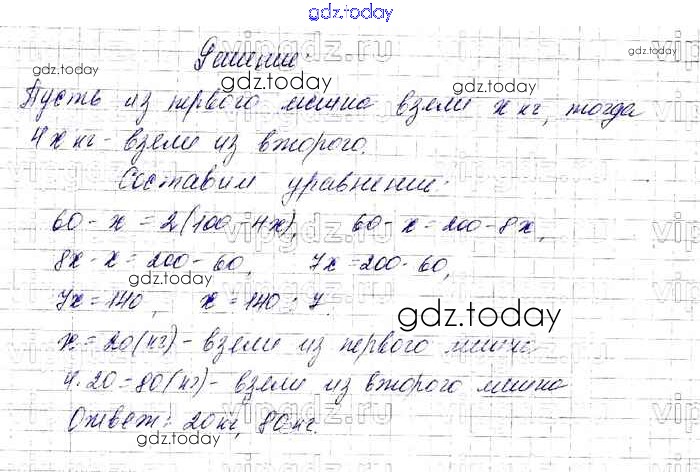 gdz.today
Решение:
gdz.today
gdz.today
Пусть из первого мешка взели x кг, тогда
4x кг - взели из второго.
gdz.today
gdz.today
Составим уравнение:
60 - x = 2(100 - 4x), 60 - x = 200 - 8x,
8x - x = 200 - 60, 7x = 200 - 60,
gdz.today
7x = 140, x = 140 : 7
gdz.today
x = 20(кг) - взели из первого мешка
4·20 = 80(кг) - взели из второго мешка
gdz.today
Ответ: 20 кг, 80 кг.
gdz.today
gdz.today